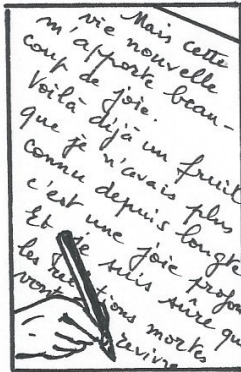 Mais cette
vie nouvelle
m'apporte beau-
coup de joie.
Voilà déjà un fruit
que je n'avais plus
connu depuis longte
c'est une joie profon
Et je suis sûre que
les mortes
vont revivre